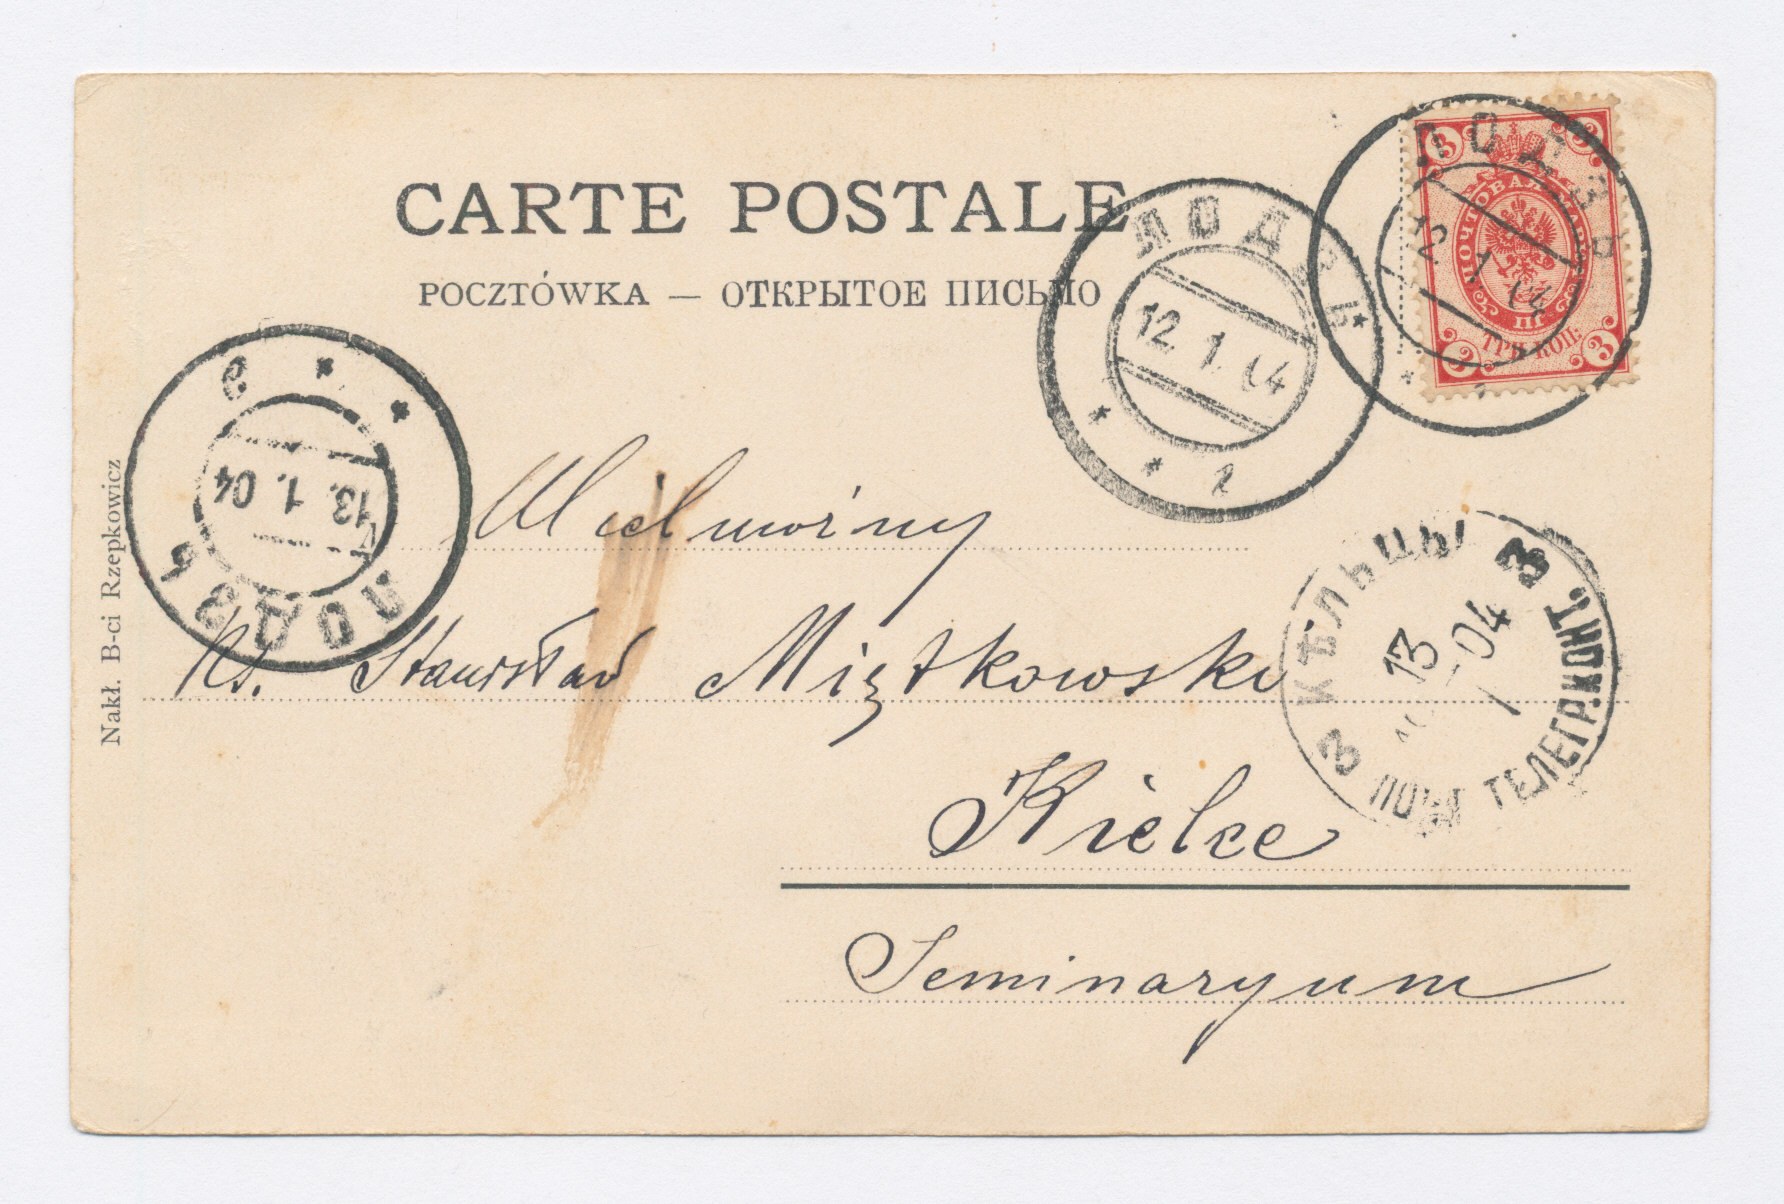 CARTE POSTALE
POCZTÓWKA — ОТКРЫТОЕ ПИСЬМО
3 3
ПОЧТОВАЯ
ТРИ КОП.
3 3
ЛОДЗЬ
12.1.04
ЛОДЗЬ
12.1.04
2
ЛОДЗЬ
13.1.04
Nakł. B-ci Rzepkowicz
Wielmożny
Ks. Stanisław
Kielce
Seminaryum
З КѢЛЬЦЫ З
13
1-04
ПОЧТ ТЕЛЕГР.КОНТ.